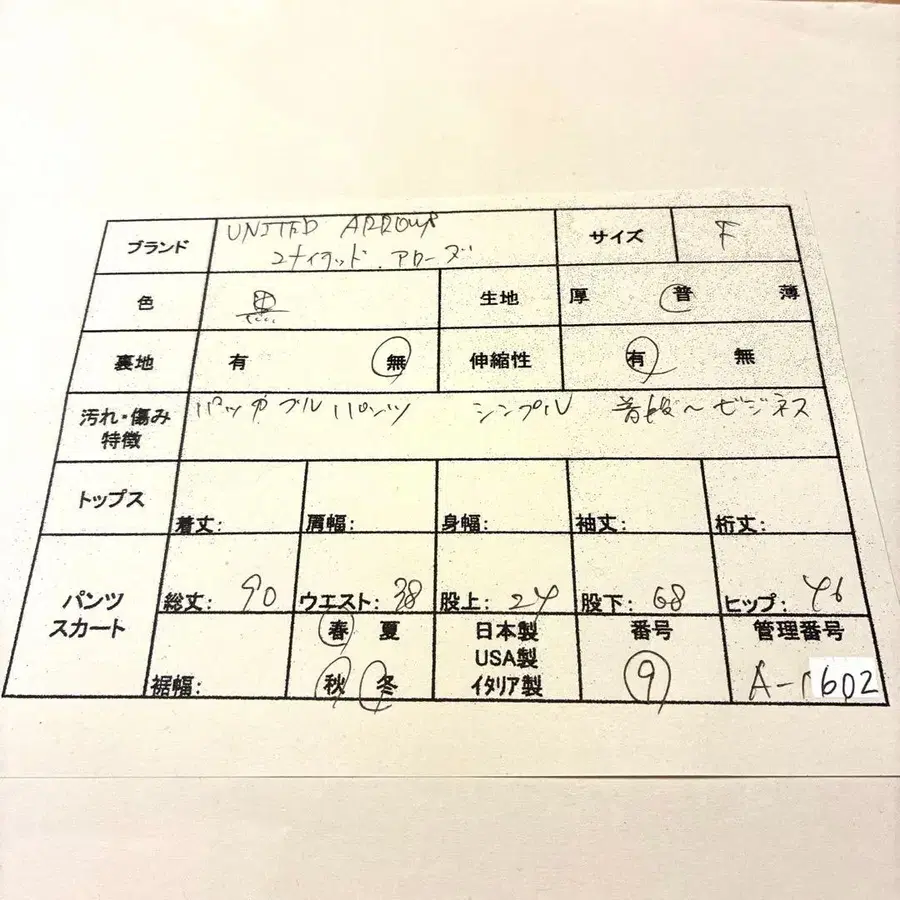 ブランド UNITED ARROWS サイズ F
ユナイテッド.アローズ
色 黒 生地 厚 普 薄
裏地 有 無 伸縮性 有 無
汚れ・傷み パッカブルパンツ シンプル 普段〜ビジネス
特徴
トップス 着丈: 肩幅: 身幅: 袖丈: 裄丈:
パンツ 総丈: 90 ウエスト: 38 股上: 24 股下: 68 ヒップ: 46
スカート 春 夏 日本製 番号 管理番号
USA製
裾幅: 秋 冬 イタリア製 9 A-602